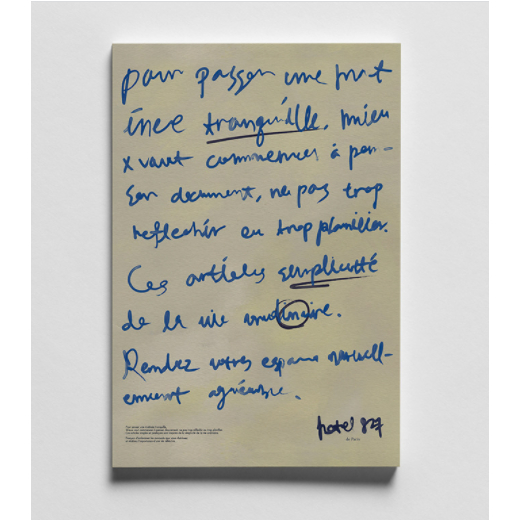 pour passer une nuit
ince tranquille, mieu
x vaut commencer à pen-
ser doucement, ne pas trop
reflechir ou trop planifier.
Ces articles simplicité
de la vie ordinaire.
Rendez votres espace naturell-
ement agréable.
hotel 827
de Paris